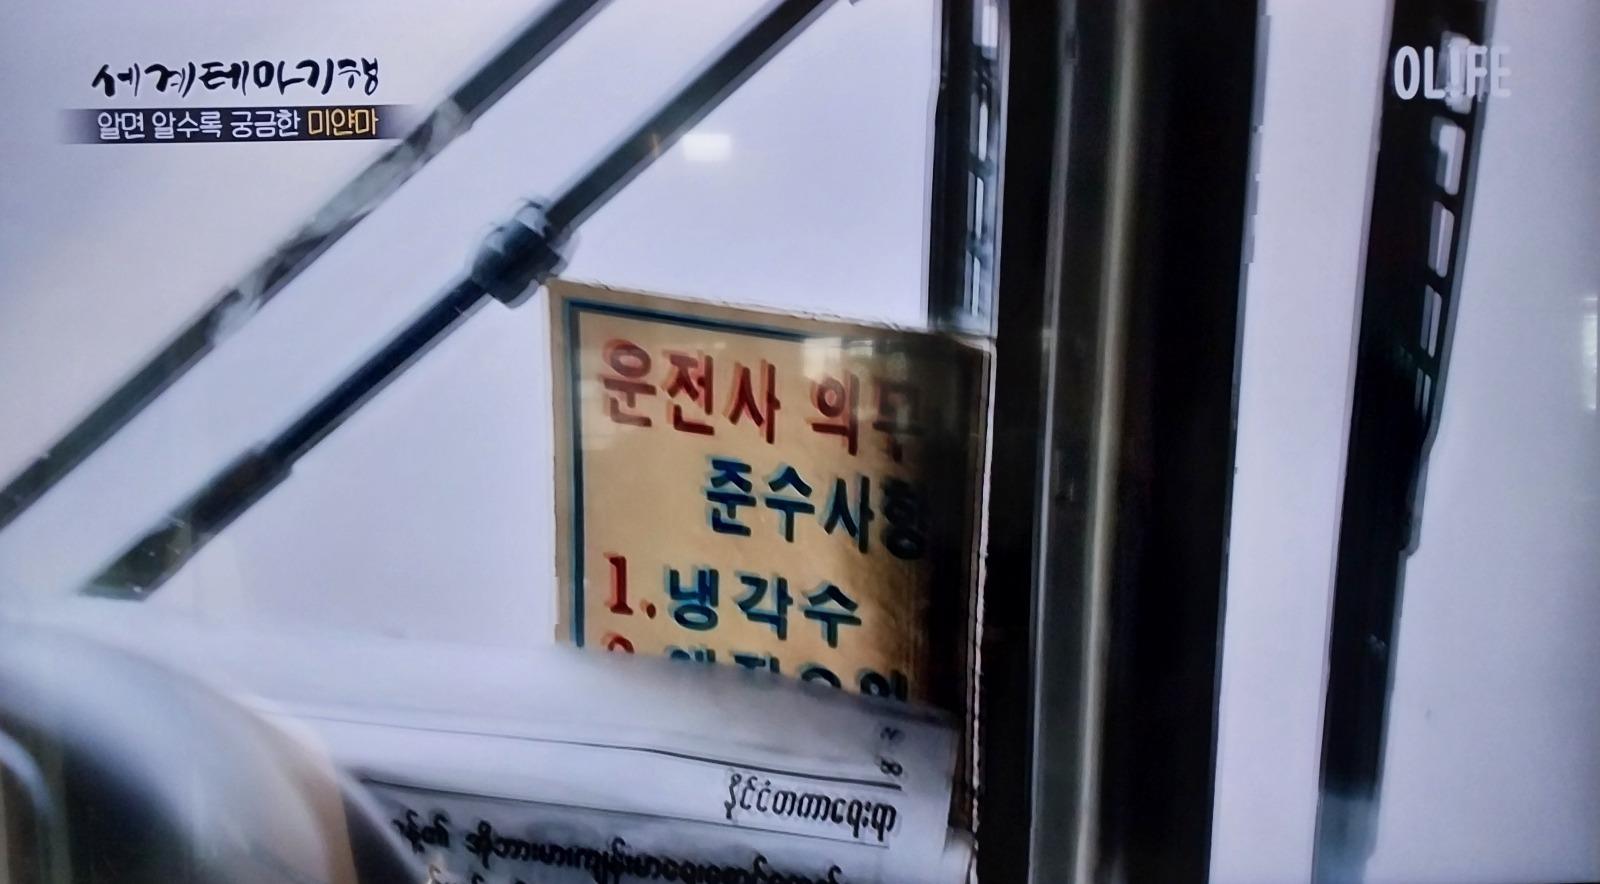 세계테마기행
알면 알수록 궁금한 미얀마
OLIFE
운전사 의무
준수사항
1.냉각수
နိုင်ငံတကာရေးရာ